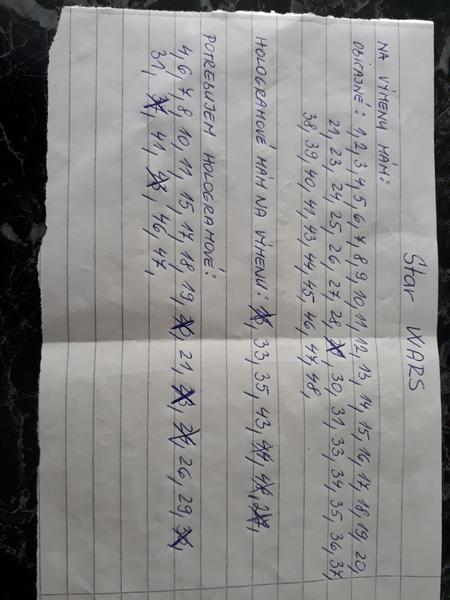 Star WARS
NA VÝMENU MÁM:
OBYČAJNÉ: 1, 2, 3, 4, 5, 6, 7, 8, 9, 10, 11, 12, 13, 14, 15, 16, 17, 18, 19, 20,
21, 23, 24, 25, 26, 27, 28, 30, 31, 33, 34, 35, 36, 37,
38, 39, 40, 41, 43, 44, 45, 46, 47, 48,
HOLOGRAMOVÉ MÁM NA VÝMENU: 33, 35, 43,
POTREBUJEM HOLOGRAMOVÉ:
4, 6, 7, 8, 10, 11, 15, 17, 18, 19, 21, 26, 29,
31, 41, 46, 47,